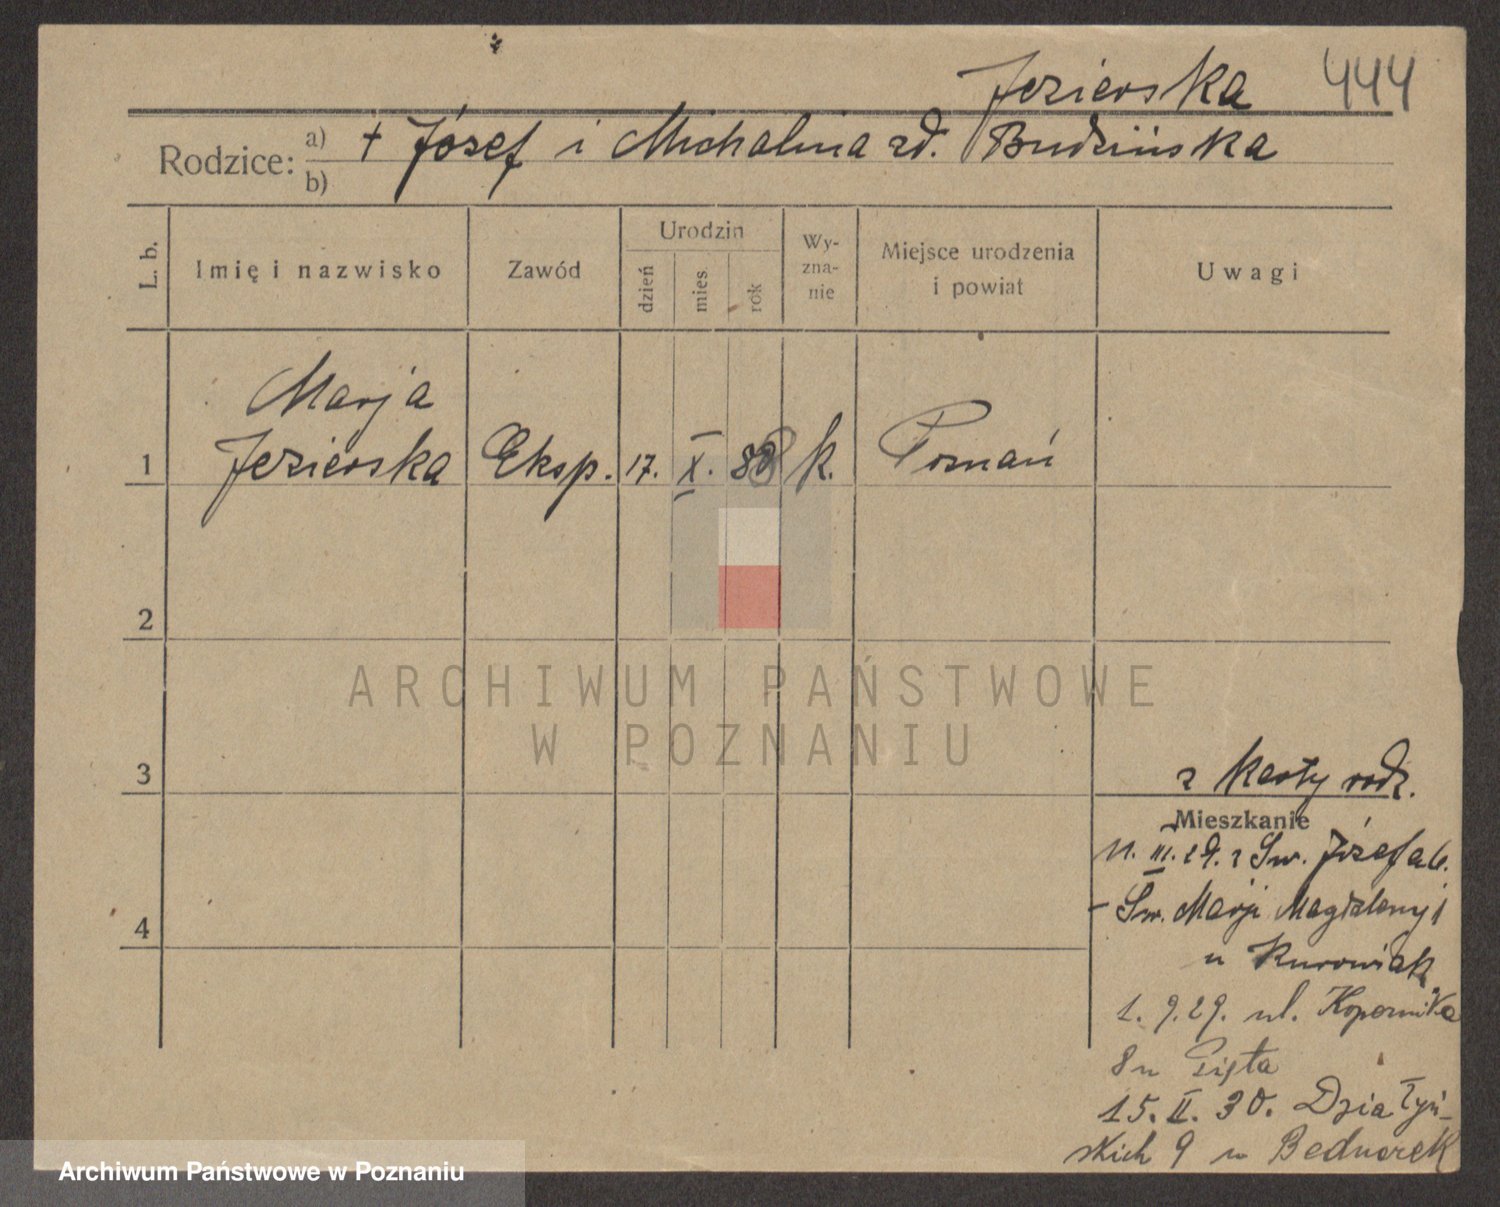 Jezierska 444
Rodzice: a) + Józef i Michalina zd. Budzińska
b)
L. b.
Imię i nazwisko
Zawód
Urodzin
dzień
mies
rok
Wy-
zna-
nie
Miejsce urodzenia
i powiat
Uwagi
Marja
1 Jezierska Eksp. 17. X. k. Poznań
2
ARCHIWUM PAŃSTWOWE
W POZNANIU
3
z karty rodz.
Mieszkanie
11. III. 29. z Św. Józefa 6.
- Św. Marji Magdaleny 1
4
u Kurowiak
1. 9. 29. ul. Kopernika
8 u Pięta
15. II. 30. Działyń-
skich 9 u Bednarek
Archiwum Państwowe w Poznaniu